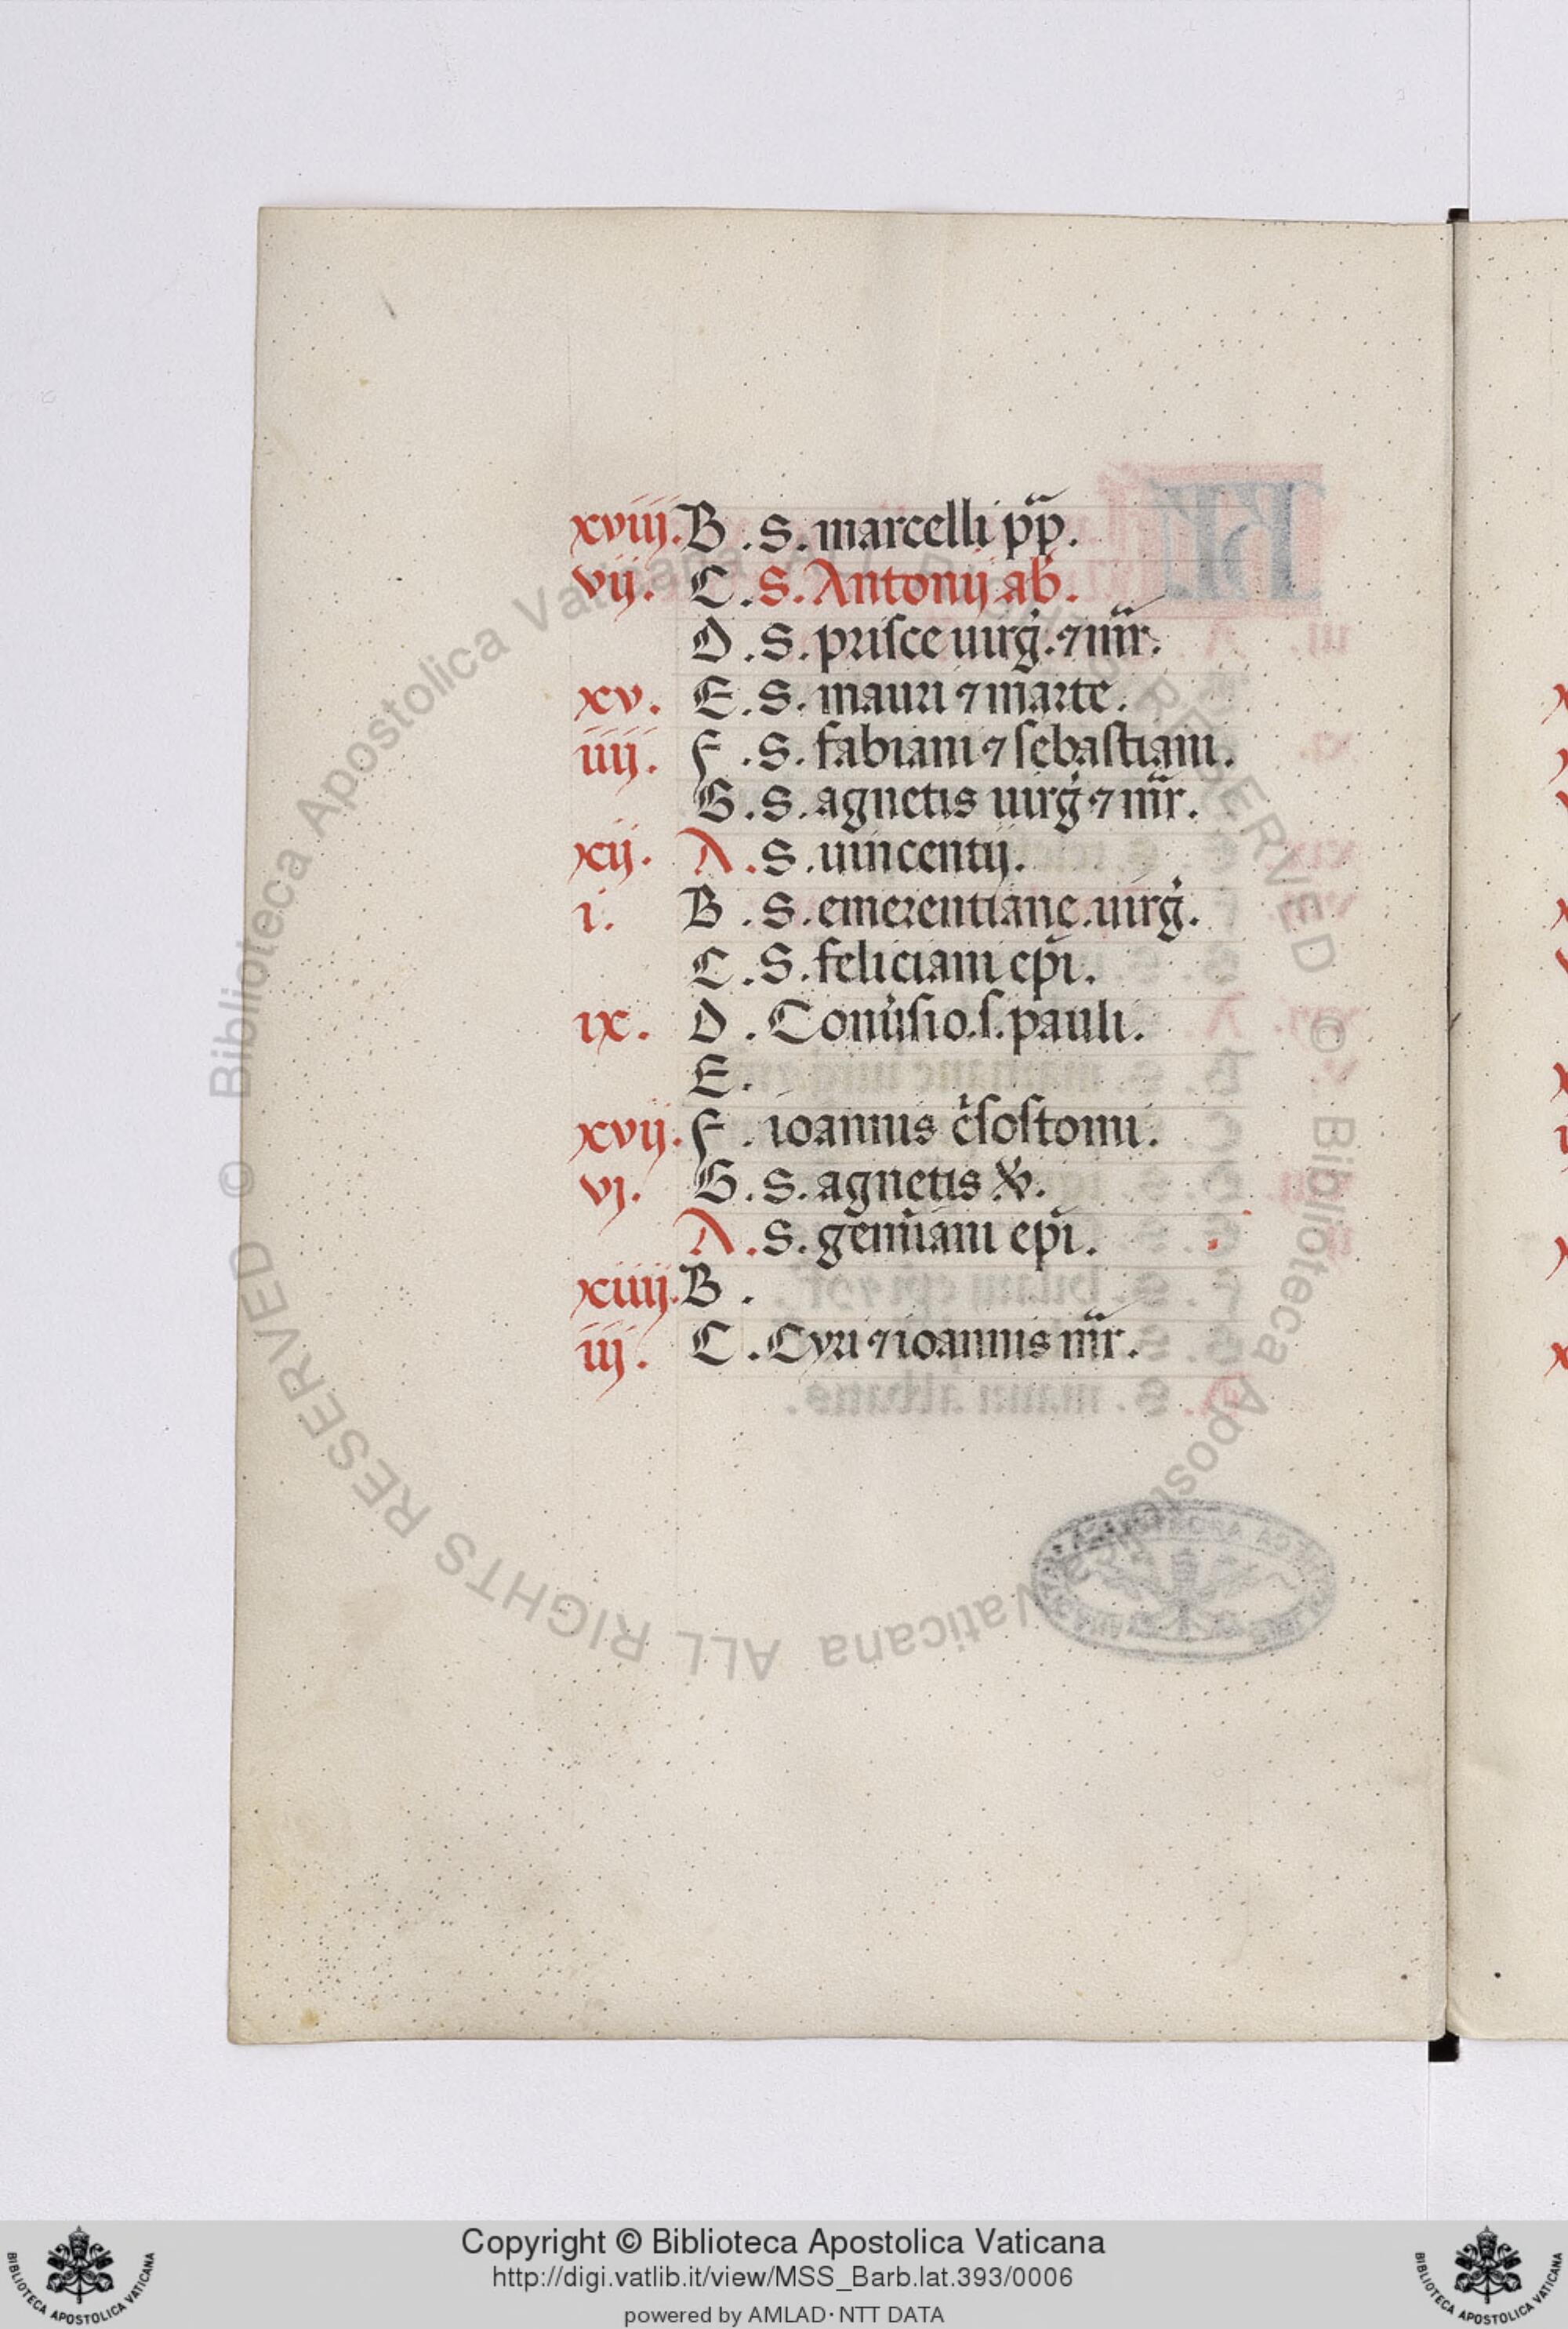 xviij. B . S. marcelli pp̄.
vij. C . S. Antonij ab̄.
D . S. prisce uirḡ. ⁊ mr̄.
xv. E . S. mauri ⁊ marte.
iiij. F . S. fabiani ⁊ sebastiani.
G . S. agnetis uirḡ ⁊ mr̄.
xij. A . S. uincentij.
i. B . S. emerentiane. uirḡ.
C . S. feliciani ep̄i.
ix. D . Conu̓sio. s. pauli.
E .
xvij. F . ioannis c̓sostomi.
vj. G . S. agnetis
A . S. geminiani ep̄i.
xiiij. B .
iij. C . Cyri ⁊ ioannis mr̄.
© Biblioteca Apostolica Vaticana ALL RIGHTS RESERVED © Biblioteca Apostolica Vaticana ALL RIGHTS RESERVED
Copyright © Biblioteca Apostolica Vaticana
http://digi.vatlib.it/view/MSS_Barb.lat.393/0006
powered by AMLAD·NTT DATA
BIBLIOTECA APOSTOLICA VATICANA
BIBLIOTECA APOSTOLICA VATICANA